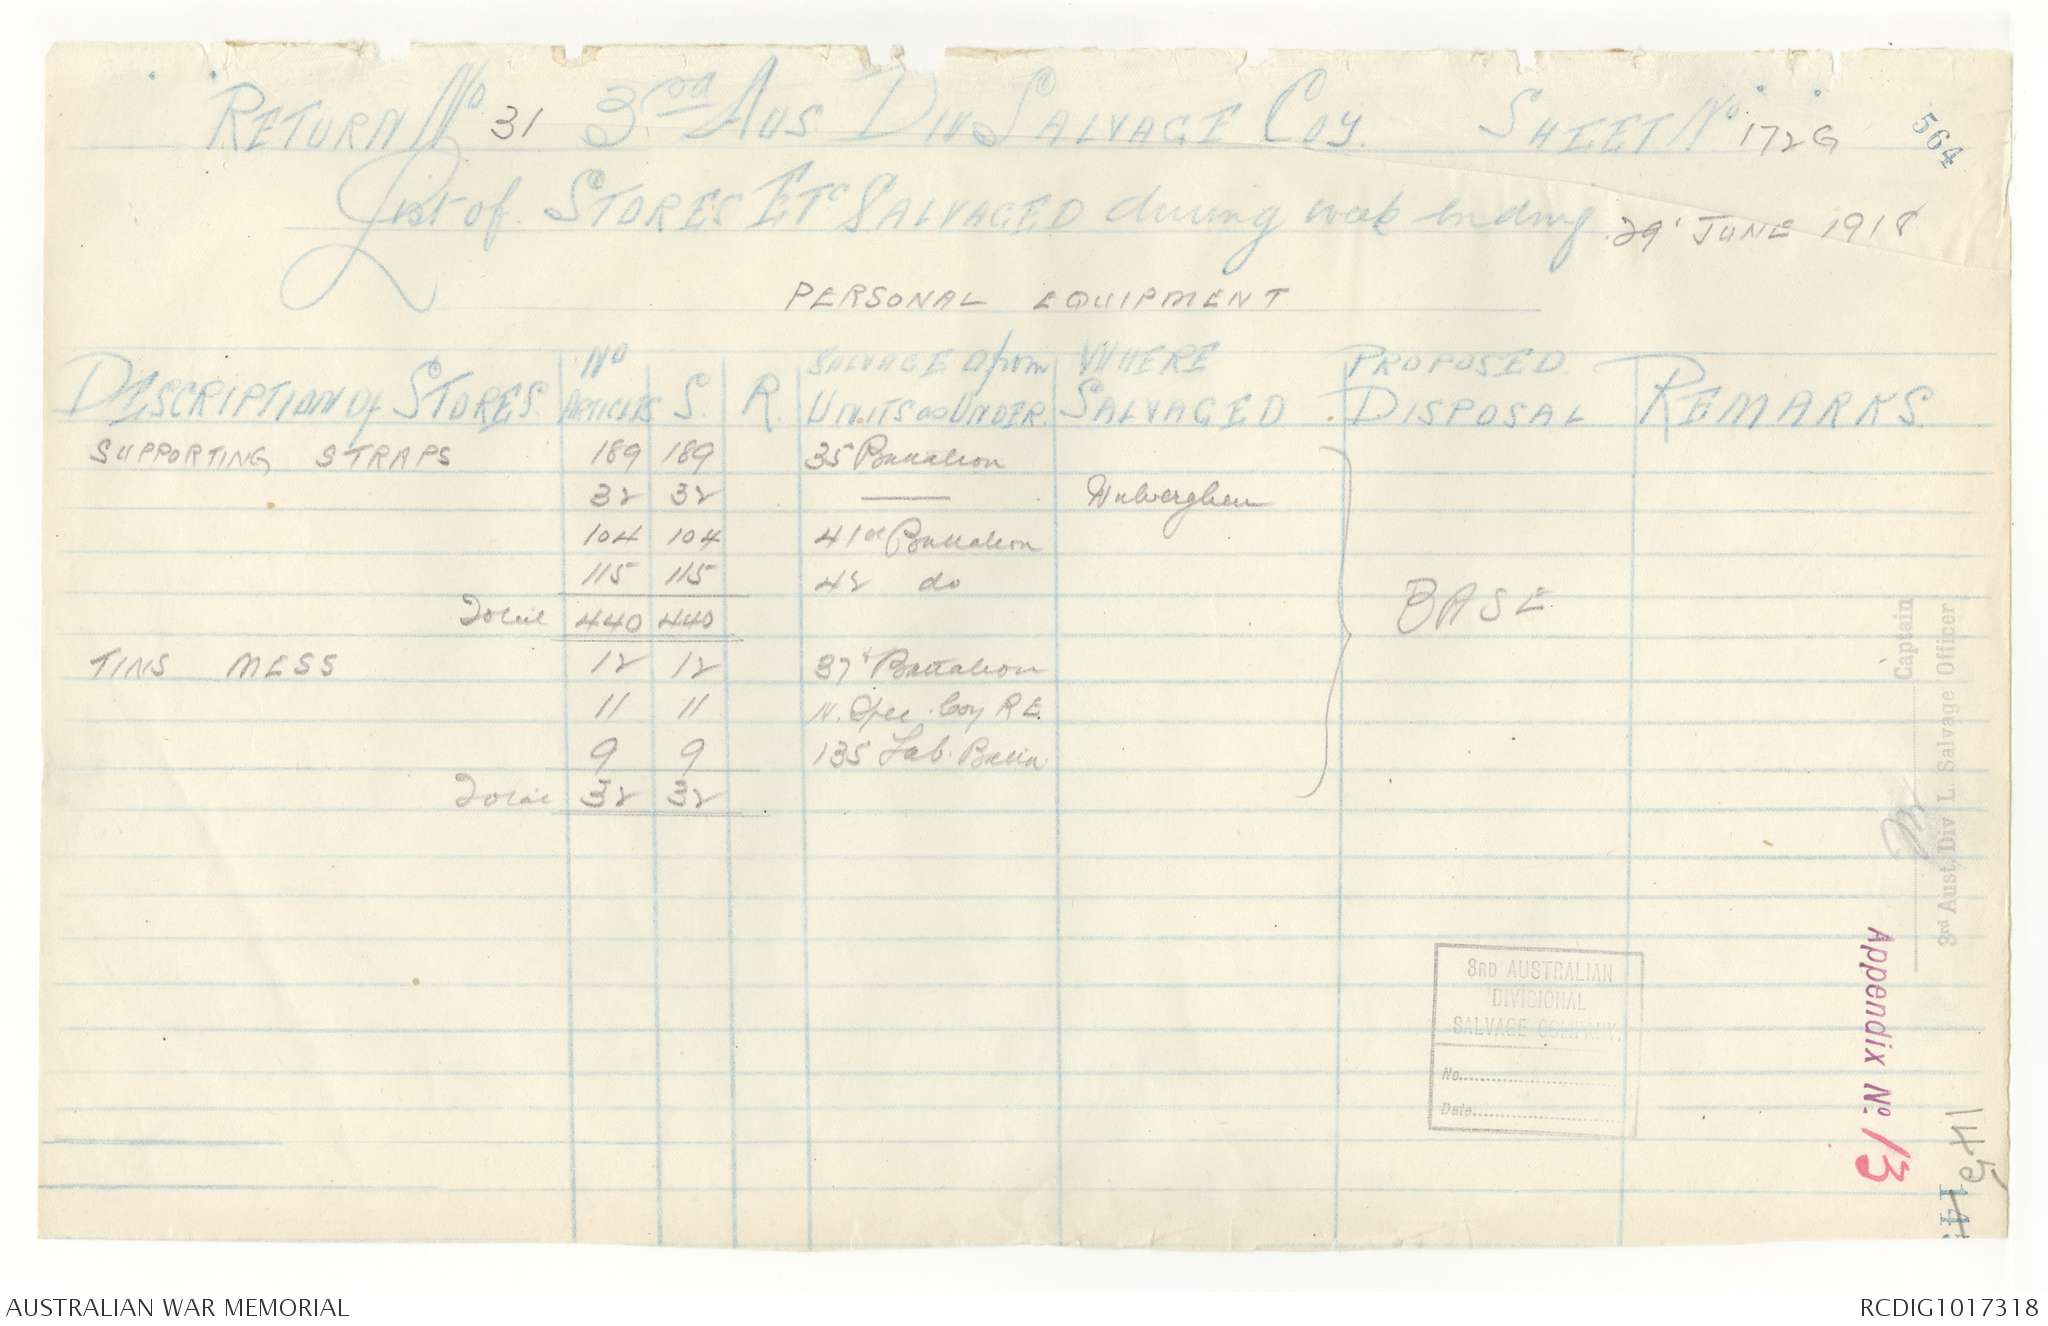 RETURN No 31 3rd AUS. DIV SALVAGE COY. SHEET No 172G
564
List of STORES ETC SALVAGED during week Ending 29' JUNE 1918
PERSONAL EQUIPMENT
DESCRIPTION of STORES. No ARTICLES S. R. SALVAGED from UNITS as UNDER. WHERE SALVAGED PROPOSED DISPOSAL REMARKS.
SUPPORTING STRAPS 189 189 35 Battalion
32 32 —— Wulverghem
104 104 41st Battalion
115 115 42 do
Total 440 440
BASE
TINS MESS 12 12 37t Battalion
11 11 Spec. Coy R E.
9 9 135 Lab. Battn.
Total 32 32
Captain
3rd Aust. Div L. Salvage Officer
3RD AUSTRALIAN
DIVISIONAL
SALVAGE COMPANY.
No.
Date
Appendix No. 13
145
14
AUSTRALIAN WAR MEMORIAL
RCDIG1017318